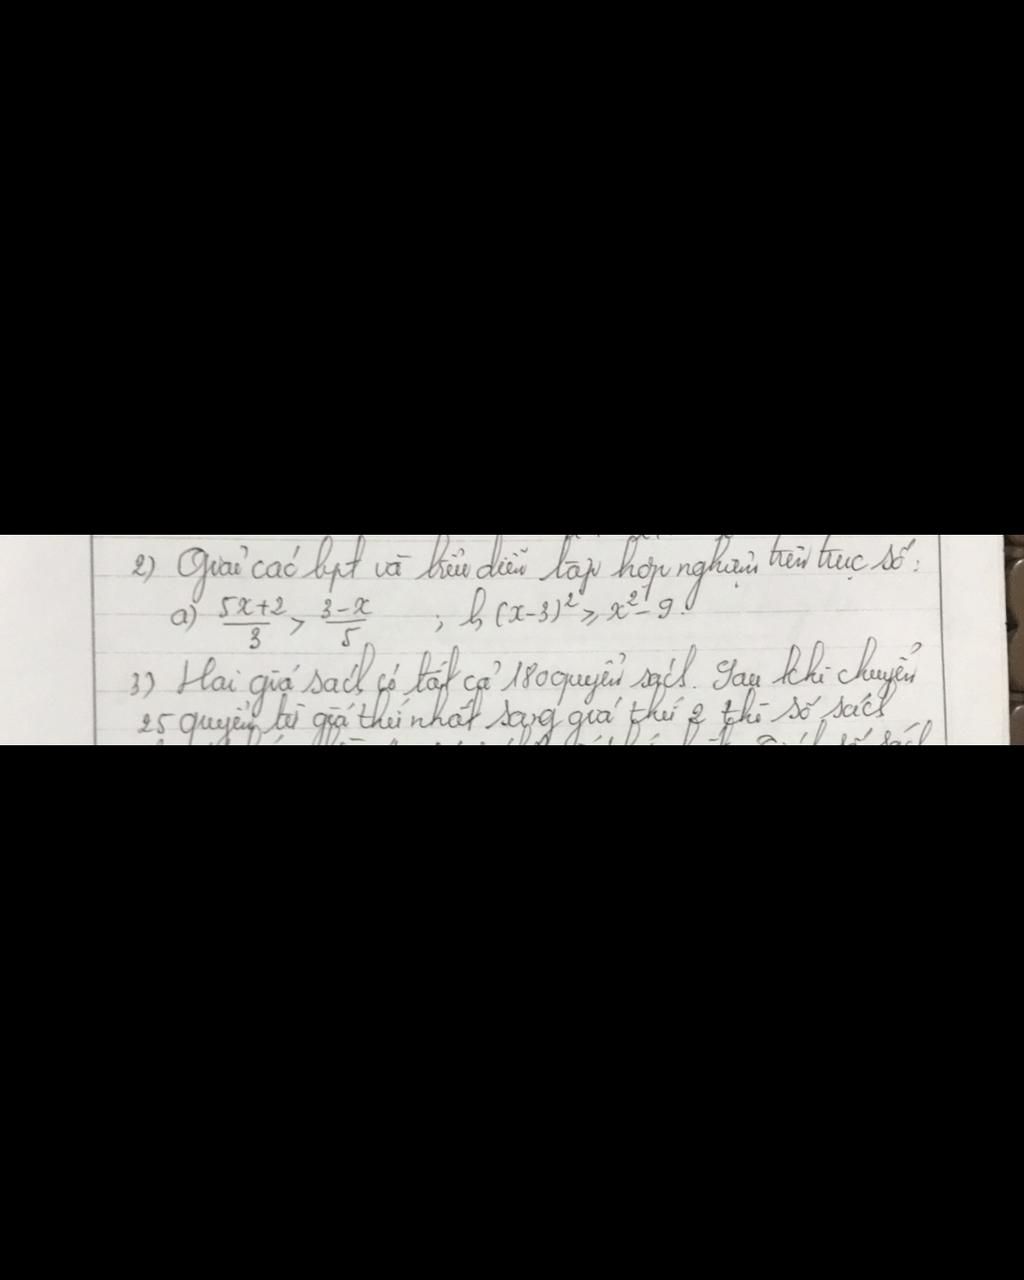 2) Giải các bpt và biểu diễn tập hợp nghiệm trên trục số:
a) \frac{5x+2}{3} > \frac{3-x}{5} ; b, (x-3)² ≥ x² - 9.
3) Hai giá sách có tất cả 180 quyển sách. Sau khi chuyển
25 quyển từ giá thứ nhất sang giá thứ 2 thì số sách